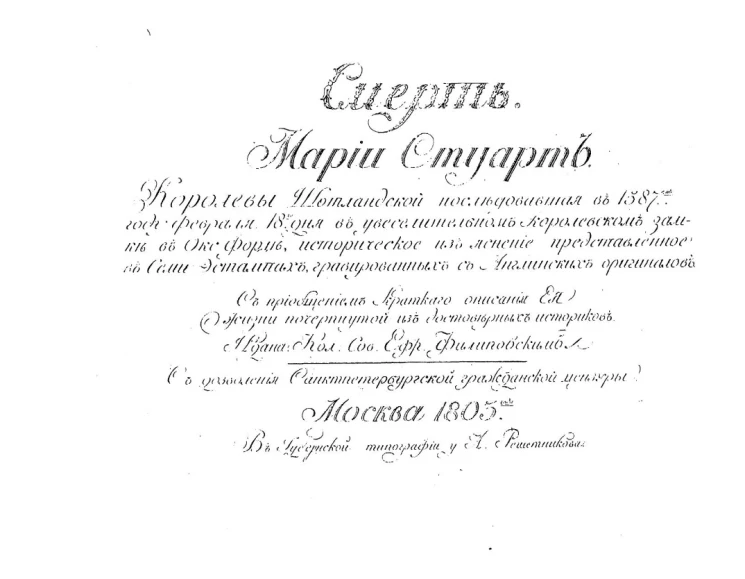 Смерть.
Маріи Стуартъ.
Королевы Шотландской последовавшая въ 1587.мъ
годѣ февраля 18.го дня въ увеселительномъ королевскомъ зам-
кѣ въ Оксфордѣ, историческое изъясненіе представленное
въ Семи Эстампахъ, гравированныхъ съ Англинскихъ оригиналовъ
Съ пріобщеніемъ Краткаго описанія ЕЯ
жизни почерпнутой изъ достовѣрныхъ историковъ.
Издана: Кол. Сов. Ефр. Филиповскимъ
Съ дозволенія Санктпетербургской гражданской ценсуры
Москва 1805.
Въ Губернской типографіи у А. Решетникова.